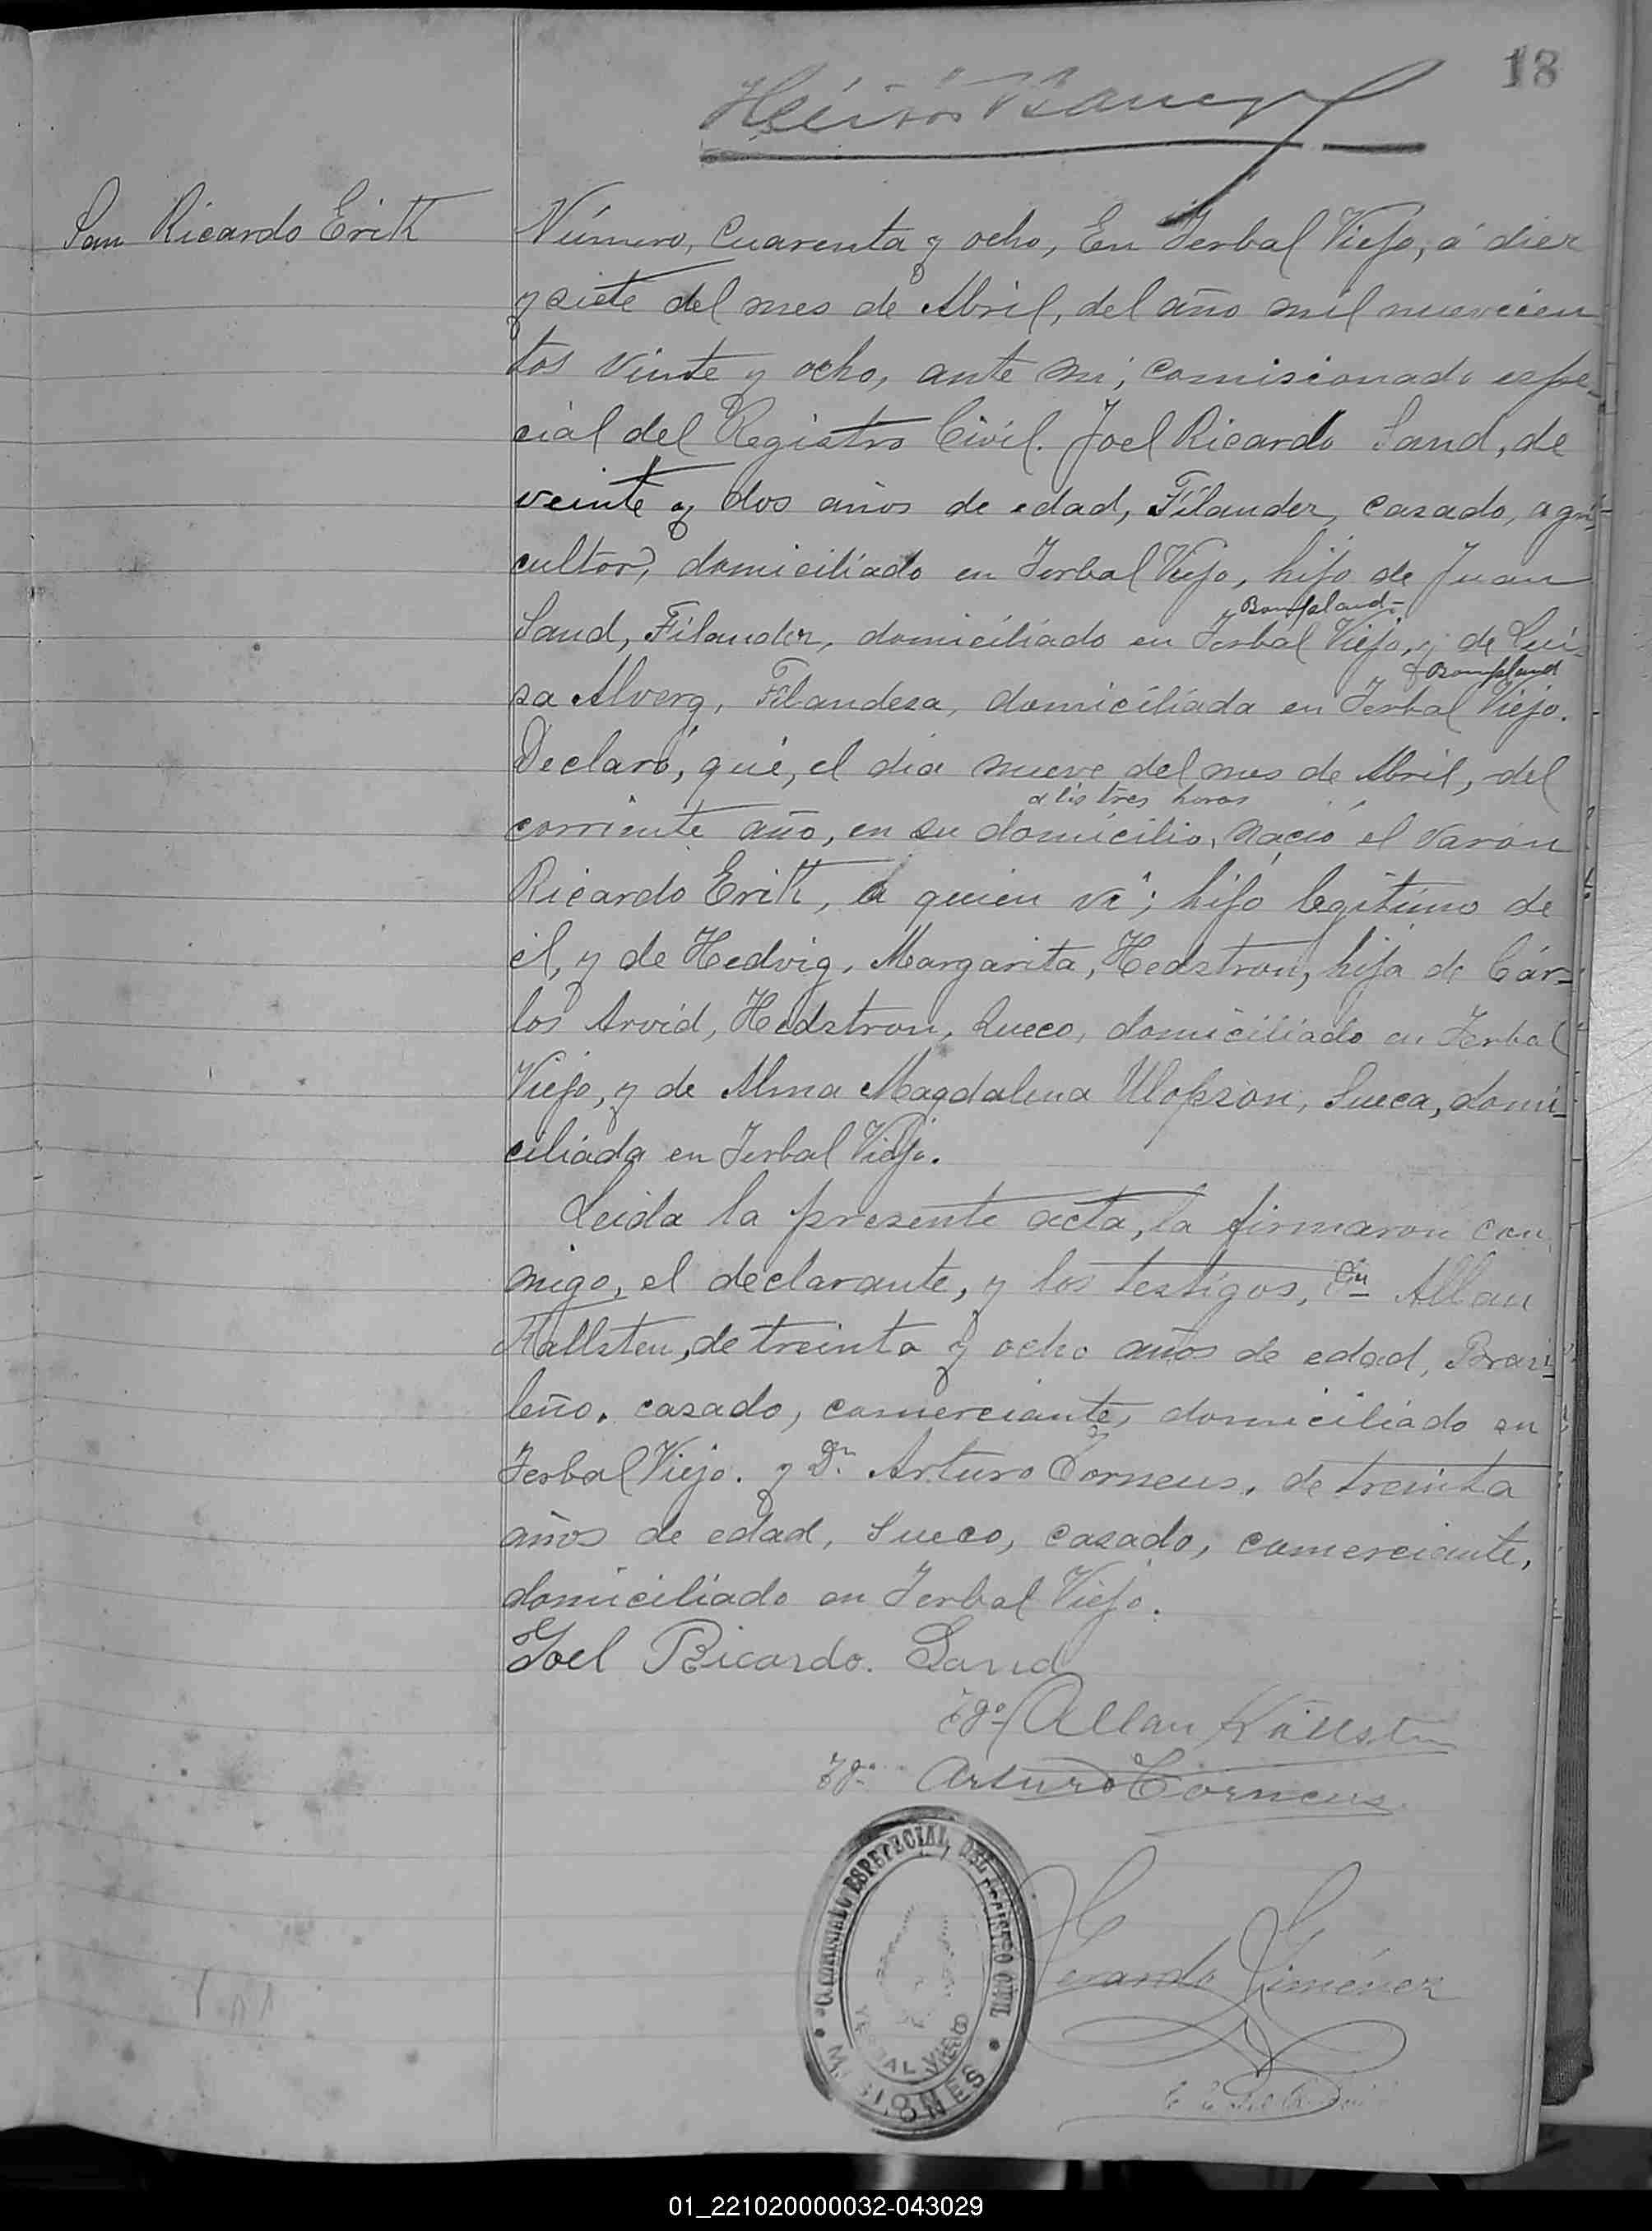 18
San Ricardo Erik
Número, Cuarenta y ocho, En Yerbal Viejo, á diez
y siete del mes de Abril, del año mil novecien
tos vinte y ocho, ante mi, comisionado espe
cial del Registro Civil. Joel Ricardo Sand, de
veinte y dos años de edad, Filander, casado, agri-
cultor, domiciliado en Yerbal Viejo, hijo de Juan
y Bompland-
Sand, Filander, domiciliado en Yerbal Viejo, y de Lui-
Bompland
sa Alverg, Filandesa, domiciliada en Yerbal Viejo.
Declaró, qué, el dia nueve del mes de Abril, del
a las tres horas
corriente año, en su domicilio, nació el varon
Ricardo Erik, a quien vi; hijo legitimo de
él, y de Hedvig, Margarita, Hedstron, hija de Cár-
los Arvid, Hedstron, Sueco, domiciliado en Yerbal
Viejo, y de Alma Magdalena Ulofson, Sueca, domi-
ciliada en Yerbal Viejo.
Leida la presente acta, la firmaron con
migo, el declarante, y los testigos, Dn Allan
Kallsten, de treinta y ocho años de edad, Brasi-
leño, casado, comerciante, domiciliado en
Yerbal Viejo. y Dn Arturo Corneus, de treinta
años de edad, Sueco, casado, comerciante,
domiciliado en Yerbal Viejo.
Joel Ricardo. Sand
Tgo Allan Källsten
Tgo Arturo Corneus
COMISIONADO ESPECECIAL DEL REGISTRO CIVIL
YERBAL VIEJO
MISIONES
Gerardo Giménez
01_221020000032-043029